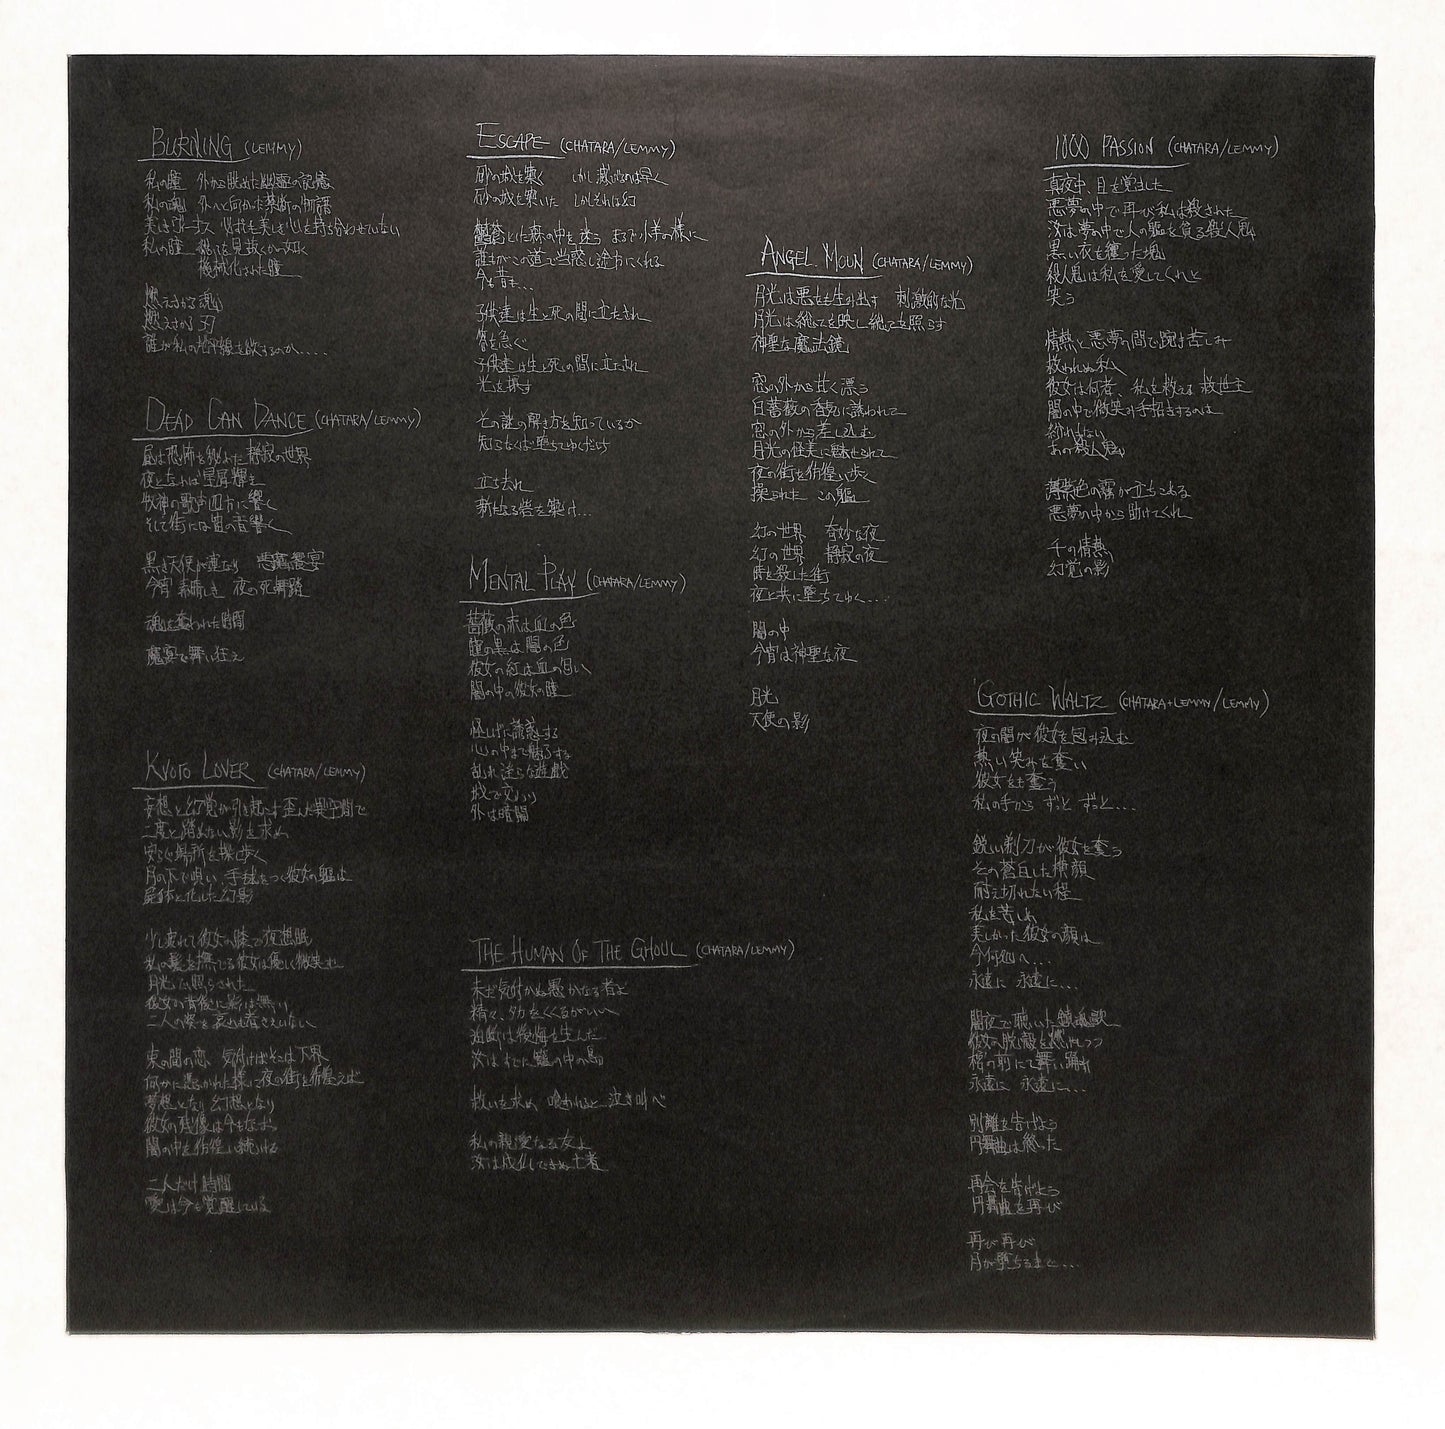 BURNING (LEMMY)
私の瞳 外から眺めた幽霊の記憶
私の魂 外へと向かった禁断の物語
美しきヴィーナス 必ずしも美しき心を持ち合わせていない
私の瞳 総てを見抜くかの如く
機械化された瞳
燃えさかる魂
燃えさかる刃
誰が私の地平線を欲するのか.....
DEAD CAN DANCE (CHATARA/LEMMY)
昼は恐怖を秘めた静寂の世界
夜ともなれば星屑輝き
牧神の歌声四方に響く
そして街には笛の音響く
黒き天使が連なり 悪魔の饗宴
今宵素晴しき 夜の死舞踏
魂を奪われた時間
魔宴で舞い狂え
KYOTO LOVER (CHATARA/LEMMY)
妄想と幻覚が引き起こす歪んだ異空間で
二度と踏めない影を求め
安らぐ場所を探し歩く
月の下で唄い 手毬をつく彼女の軀は
屍体と化した幻影
少し疲れて彼女の膝で夜想眠
私の髪を撫でる彼女は優しく微笑む
月光で照らされた
彼女の背後に影は無い
二人の姿を哀れむ者さえいない
束の間の恋 気付けばそこは下界
何かに憑かれた様に夜の街を彷徨えば
夢想となり幻想となり
彼女の残像は今もなお
闇の中を彷徨い続ける
二人だけの時間
愛は今も覚醒している
ESCAPE (CHATARA/LEMMY)
砂の城を築く しかし滅ぶのは早く
砂の城を築いた しかしそれは幻
鬱蒼とした森の中を迷う まるで小羊の様に
誰もがこの道で当惑し途方にくれる
今も昔も...
子供達は生と死の間に立たされ
答を急ぐ
子供達は生と死の間に立たされ
光を探す
その謎の解き方を知っているか
知らなくば堕ちてゆくだけ
立ち去れ
新たなる砦を築け...
MENTAL PLAY (CHATARA/LEMMY)
薔薇の赤は血の色
瞳の黒は闇の色
彼女の紅は血の匂い
闇の中の彼女の瞳
怪しげに誘惑する
心の中まで魅了する
乱れ淫らな遊戯
城で交わり
外は暗闇
THE HUMAN OF THE GHOUL (CHATARA/LEMMY)
未だ気付かぬ愚かなる者よ
精々、タカをくくるがいい
油断は後悔を生んだ
汝はすでに籠の中の鳥
救いを求め 喰われると泣き叫べ
私の親愛なる友よ
汝は成仏できぬ亡者
ANGEL MOON (CHATARA/LEMMY)
月光は悪をも生み出す 刺激的な光
月光は総てを映し総てを照らす
神聖な魔法鏡
窓の外から甘く漂う
白薔薇の香りに誘われて
窓の外から差し込む
月光の怪美に魅せられて
夜の街を彷徨い歩く
操られた この軀
幻の世界 奇妙な夜
幻の世界 静寂の夜
時を殺した街
夜と共に堕ちてゆく....
闇の中
今宵は神聖な夜
月光
天使の影
1000 PASSION (CHATARA/LEMMY)
真夜中、目を覚ました
悪夢の中で再び私は殺された
汝は夢の中で人の軀を貪る殺人鬼
黒い衣を纏った塊
殺人鬼は私を愛してくれと
笑う
情熱と悪夢の間で踠き苦しみ
救われぬ私
彼女は何者、私を救える救世主
闇の中で微笑み手招きするのは
紛れもない
あの殺人鬼
薄紫色の霧が立ちこめる
悪夢の中から助けてくれ
千の情熱
幻覚の影
GOTHIC WALTZ (CHATARA+LEMMY/LEMMY)
夜の闇が彼女を包み込む
熱い笑みを奪い
彼女をも奪う
私の手から ずっと ずっと...
鋭い剃刀が彼女を奪う
その蒼白した横顔
耐え切れない程
私を苦しめ
美しかった彼女の顔は
今何処へ...
永遠に 永遠に...
闇夜で聴いた鎮魂歌
彼女の脱殻を燃やしつつ
棺の前にて舞い踊れ
永遠に 永遠に...
別離を告げよう
円舞曲は終った
再会を告げよう
円舞曲を再び
再び再び
月が堕ちるまで...